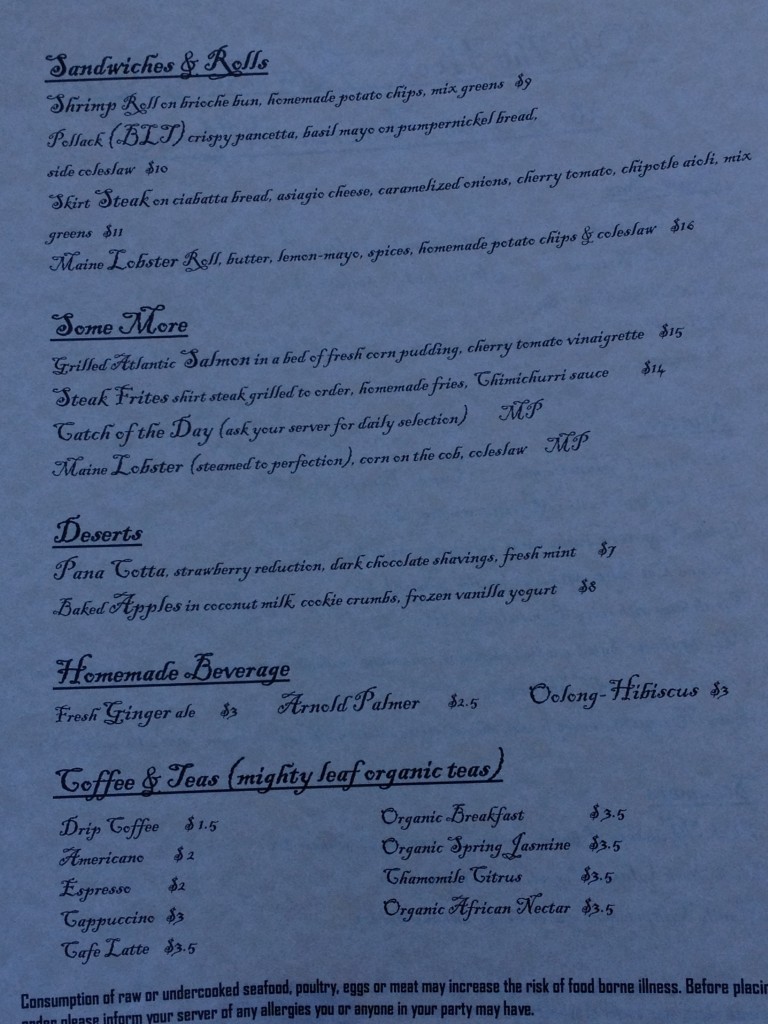 Sandwiches & Rolls
Shrimp Roll on brioche bun, homemade potato chips, mix greens $9
Pollack (BLT) crispy pancetta, basil mayo on pumpernickel bread,
side coleslaw $10
Skirt Steak on ciabatta bread, asiagio cheese, caramelized onions, cherry tomato, chipotle aioli, mix
greens $11
Maine Lobster Roll, butter, lemon-mayo, spices, homemade potato chips & coleslaw $16
Some More
Grilled Atlantic Salmon in a bed of fresh corn pudding, cherry tomato vinaigrette $15
Steak Frites shirt steak grilled to order, homemade fries, Chimichurri sauce $14
Catch of the Day (ask your server for daily selection) MP
Maine Lobster (steamed to perfection), corn on the cob, coleslaw MP
Deserts
Pana Cotta, strawberry reduction, dark chocolate shavings, fresh mint $7
Baked Apples in coconut milk, cookie crumbs, frozen vanilla yogurt $8
Homemade Beverage
Fresh Ginger ale $3 Arnold Palmer $2.5 Oolong-Hibiscus $3
Coffee & Teas (mighty leaf organic teas)
Drip Coffee $1.5 Organic Breakfast $3.5
Americano $2 Organic Spring Jasmine $3.5
Espresso $2 Chamomile Citrus $3.5
Cappuccino $3 Organic African Nectar $3.5
Cafe Latte $3.5
Consumption of raw or undercooked seafood, poultry, eggs or meat may increase the risk of food borne illness. Before placin
order please inform your server of any allergies you or anyone in your party may have.